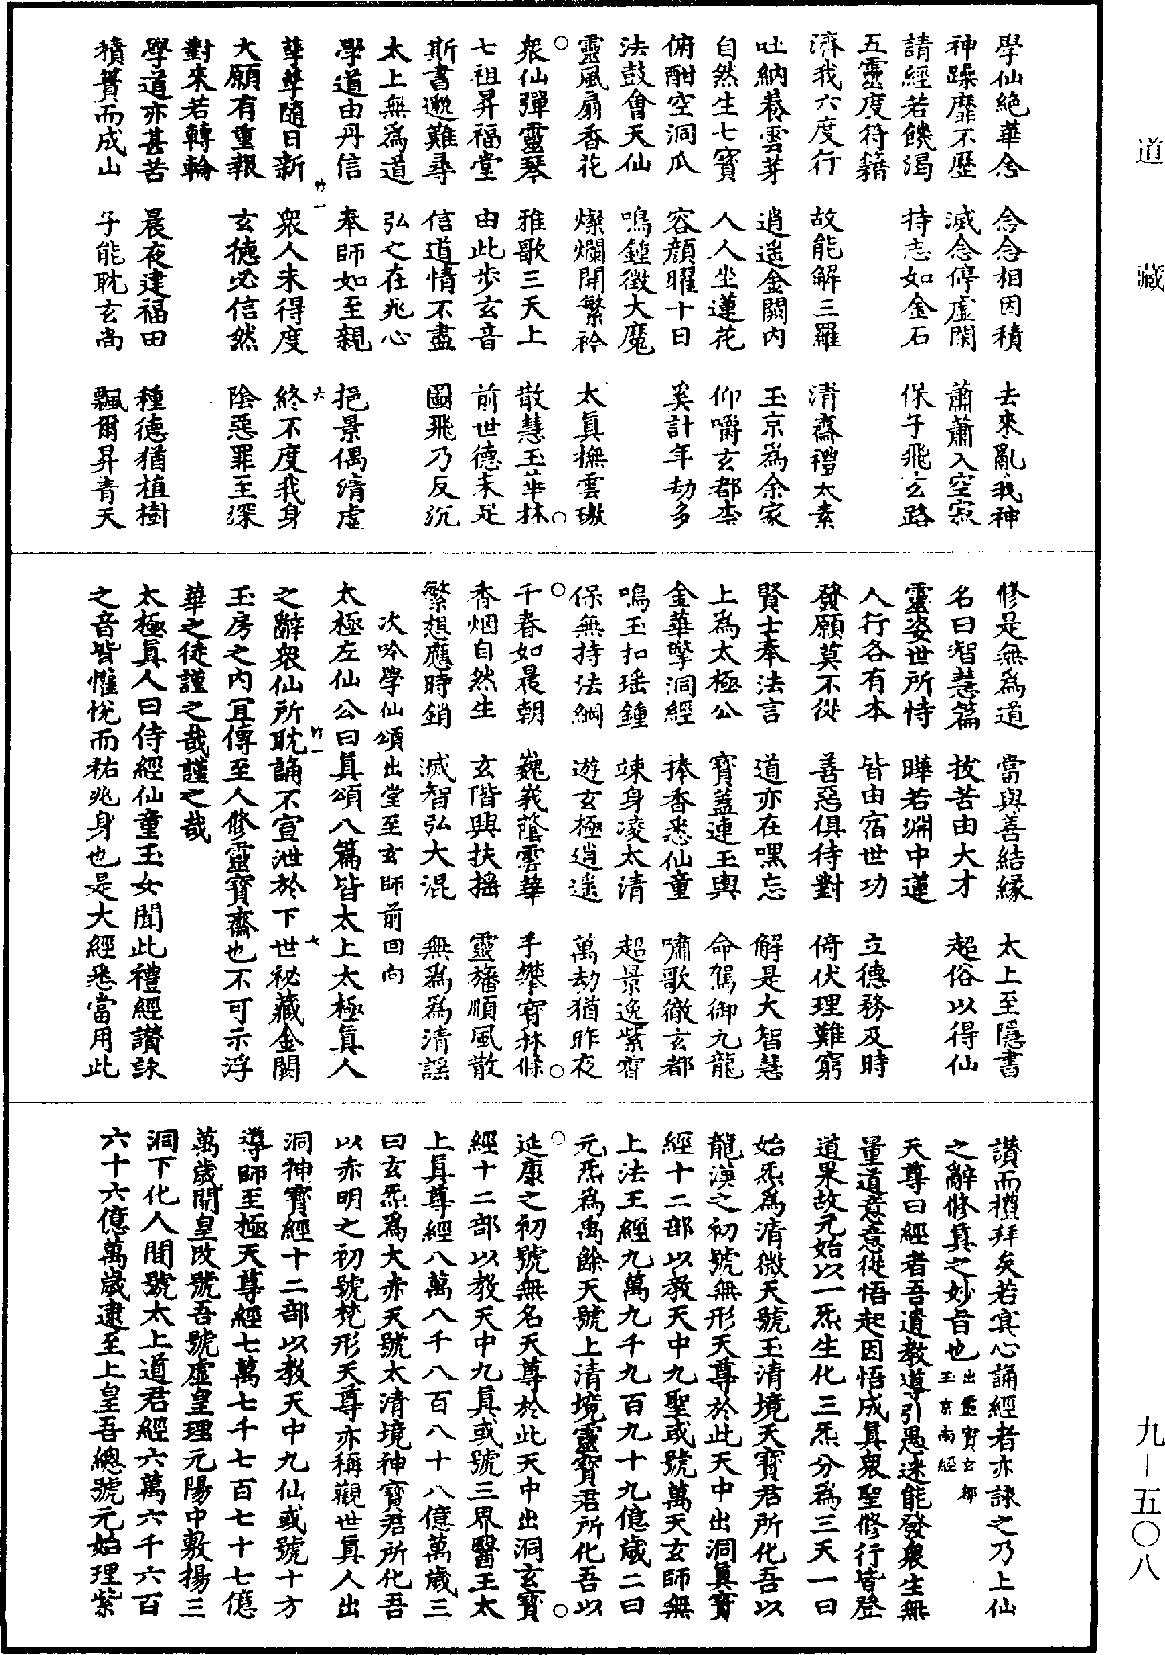 道藏
九—五〇八
學仙絕華念　念念相因積　去來亂我神
神躁靡不歷　滅念停虛閑　蕭蕭入空寂
請經若飢渴　持志如金石　保子飛玄路
五靈度符籍
濟我六度行　故能解三羅　清齋禮太素
吐納養雲芽　逍遙金闕內　玉京為余家
自然生七寶　人人坐蓮花　仰嚼玄都柰
俯酣空洞瓜　容顏曜十日　奚計年劫多
法鼓會天仙　鳴鐘徵大魔
靈風扇香花　燦爛開繁衿　太真撫雲璈
眾仙彈靈琴　雅歌三天上　散慧玉華林
七祖昇福堂　由此步玄音　前世德未足
斯書邈難尋　信道情不盡　圖飛乃反沉
太上無為道　弘之在兆心
學道由丹信　奉師如至親　挹景偶清虛
孳孳隨日新　眾人未得度　終不度我身
竹一　六
大願有重報　玄德必信然　陰惡罪至深
對來若轉輪
學道亦甚苦　晨夜建福田　種德猶植樹
積簣而成山　子能耽玄尚　飄爾昇青天
修是無為道　當與善結緣　太上至隱書
名曰智慧篇　拔苦由大才　超俗以得仙
靈姿世所恃　曄若淵中蓮
人行各有本　皆由宿世功　立德務及時
發願莫不從　善惡俱待對　倚伏理難窮
賢士奉法言　道亦在嘿忘　解是大智慧
上為太極公　寶蓋連玉輿　命駕御九龍
金華擎洞經　捧香悉仙童　嘯歌徹玄都
鳴玉扣瑤鍾　竦身凌太清　超景逸紫霄
保無持法綱　遊玄極逍遙　萬劫猶昨夜
千春如晨朝　巍峩蔭雲華　手攀霄林條
香烟自然生　玄階與扶搖　靈旛順風散
繁想應時銷　滅智弘大混　無為為清謠
次吟學仙頌出堂至玄師前回向
太極左仙公曰真頌八篇皆太上太極真人
之辭眾仙所耽誦不宣泄於下世祕藏金闕
竹一　七
玉房之內冝傳至人修靈寶齋也不可示浮
華之徒謹之哉謹之哉
太極真人曰侍經仙童玉女聞此禮經讚詠
之音皆懽悅而祐兆身也是大經悉當用此
讚而攢拜矣若寘心誦經者亦詠之乃上仙
之辭修真之妙音也出靈寶玄都玉京南經
天尊曰經者吾道教導引愚迷能發眾生無
量道意意從悟起因悟成真眾聖修行皆登
道果故元始以一炁生化三炁分為三天一曰
始炁為清微天號玉清境天寶君所化吾以
龍漢之初號無形天尊於此天中出洞真寶
經十二部以教天中九聖或號萬天玄師無
上法王經九萬九千九百九十九億歲二曰
元炁為禹餘天號上清境靈寶君所化吾以
延康之初號無名天尊於此天中出洞玄寶
經十二部以教天中九真或號三界醫王太
上真尊經八萬八千八百八十八億萬歲三
曰玄炁為大赤天號太清境神寶君所化吾
以赤明之初號梵形天尊亦稱觀世真人出
洞神寶經十二部以教天中九仙或號十方
導師至極天尊經七萬七千七百七十七億
萬歲開皇改號吾號虛皇理元陽中敷揚三
洞下化人間號太上道君經六萬六千六百
六十六億萬歲逮至上皇吾總號元始理紫